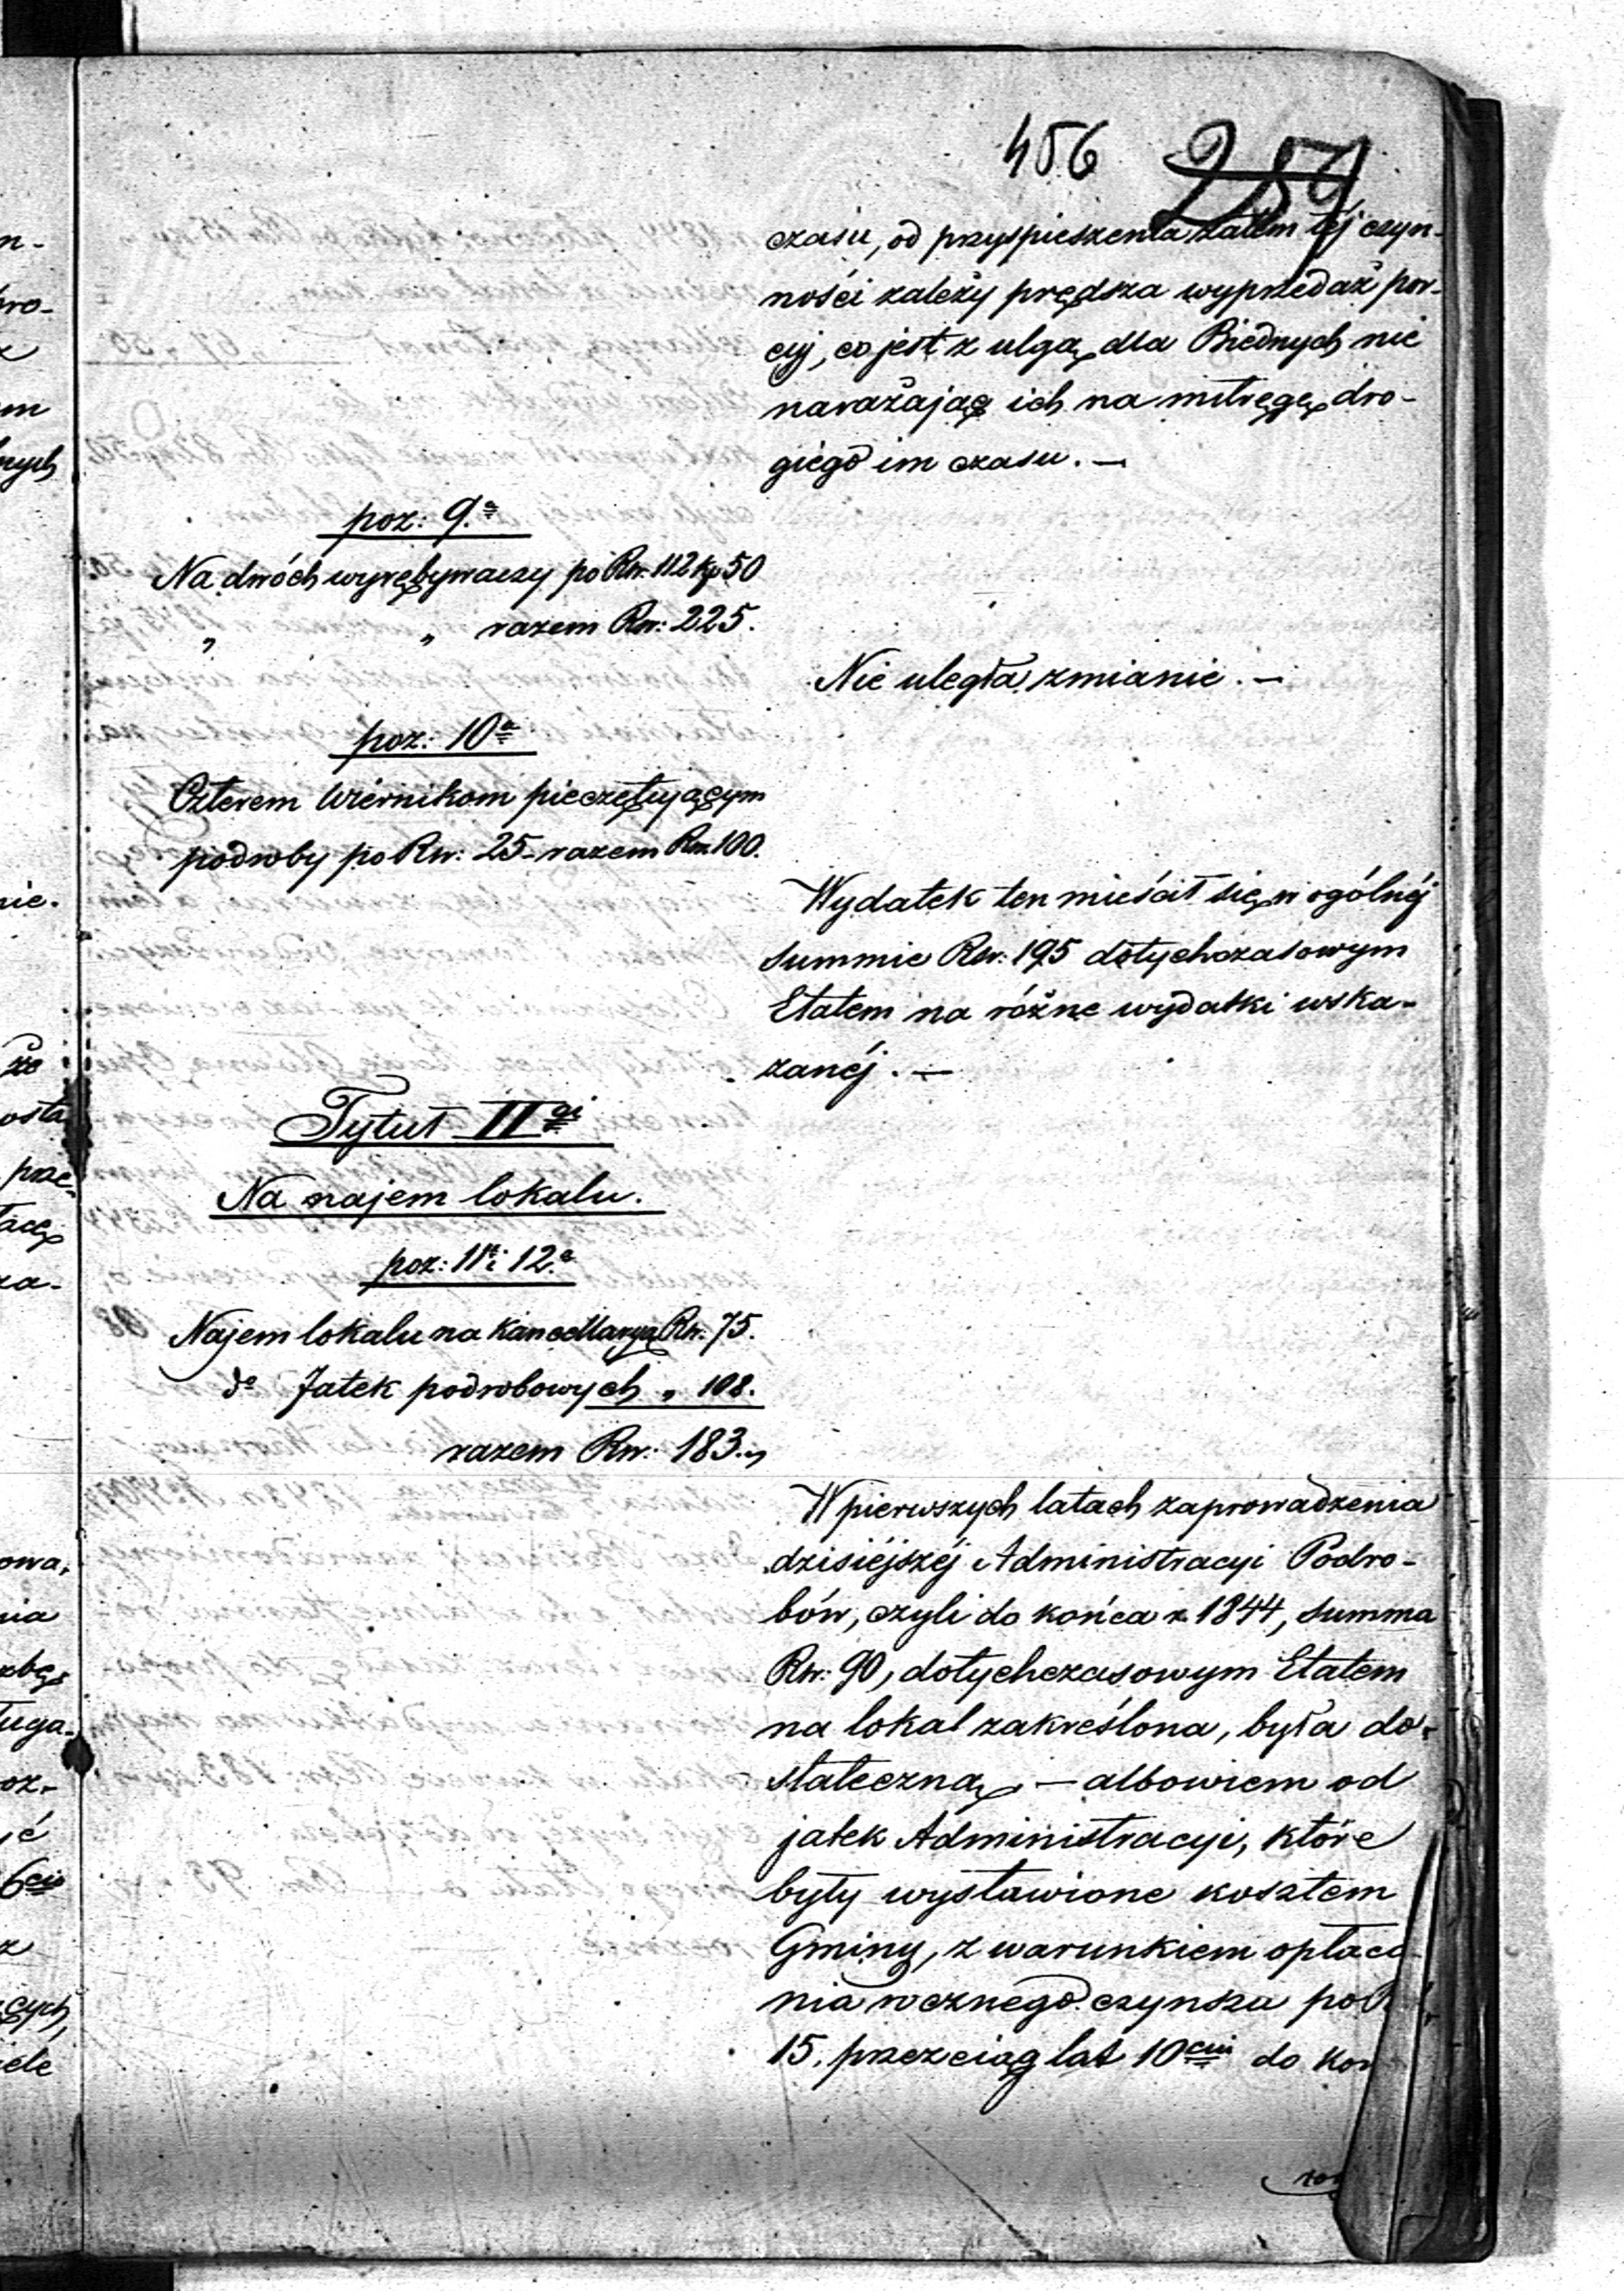 456 257
czasu, od przyspieszenia zatem téj czyn-
ności zależy prędsza wyprzedaż por-
cyj, co jest z ulgą dla Biednych nie
narażając ich na mitręgę dro-
giego im czasu. —
poz: 9.ª
Na dwóch wyrębywaczy po Rsr. 112 kp 50
„ „ razem Rsr: 225.
Nie uległa zmianie. —
poz: 10ª
Czterem Wiernikom pieczętującym
podroby po Rsr: 25 - razem Rsr. 100.
Wydatek ten mieścił się w ogólnéj
summie Rsr: 195 dotychczasowym
Etatem na różne wydatki wska-
zanéj. —
Tytuł II gi
Na najem lokalu.
poz: 11ª i 12.ª
Najem lokalu na Kancellaryą Rsr. 75.
do Jatek podrobowych „ 108.
razem Rsr: 183. „
W pierwszych latach zaprowadzenia
dzisiéjszéj Administracyi Podro-
bów, czyli do końca r. 1844, summa
Rsr: 90, dotychczasowym Etatem
na lokal zakreślona, była do-
stateczną, — albowiem od
jatek Administracyi, które
były wystawione kosztem
Gminy, z warunkiem opłaca-
nia rocznego czynszu po
15. przeciąg lat 10ciu do